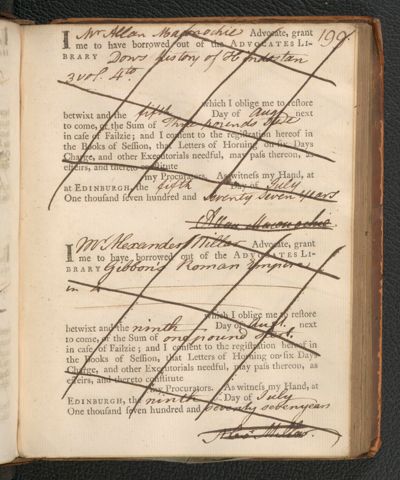 199
I Mr Allan Maconochie Advocate, grant
me to have borrowed out of the ADVOCATES LI-
BRARY Dows history of Hindostan
3 vol. 4to
which I oblige me to reſtore
betwixt and the fifth Day of Augt next
to come, or the Sum of Three pounds Ster
in caſe of Failzie; and I conſent to the regiſtration hereof in
the Books of Seſſion, that Letters of Horning on ſix Days
Charge, and other Executorials needful, may paſs thereon, as
effeirs, and thereto conſtitute
my Procurators. As witneſs my Hand, at
at EDINBURGH, the fifth Day of July
One thouſand ſeven hundred and Seventy Seven years
Allan Maconochie
I Mr Alexander Millar Advocate, grant
me to have borrowed out of the ADVOCATES LI-
BRARY Gibbons Roman Empire
in
which I oblige me to reſtore
betwixt and the ninth Day of Augt. next
to come, or the Sum of one pound Ster.
in caſe of Failzie; and I conſent to the regiſtration hereof in
the Books of Seſſion, that Letters of Horning on ſix Days
Charge, and other Executorials needful, may paſs thereon, as
effeirs, and thereto conſtitute
my Procurators. As witneſs my Hand, at
EDINBURGH, the ninth Day of July
One thouſand ſeven hundred and seventy seven years
Alexr Millar.